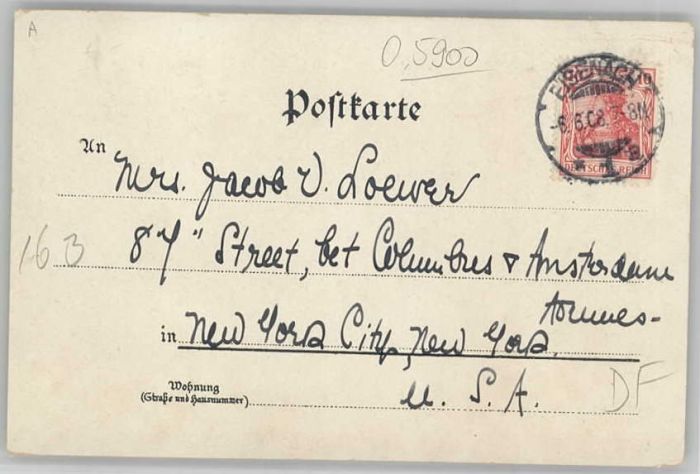 A
0,5900
Postkarte
EISENACH
10
-6.6.08. 7-8N.
DEUTSCHES REICH
An
Mrs. Jacob V. Loewer
87" Street, bet Columbus & Amsterdam
163
in New York City, New York.
U. S. A.
DF
Wohnung
(Straße und Hausnummer)